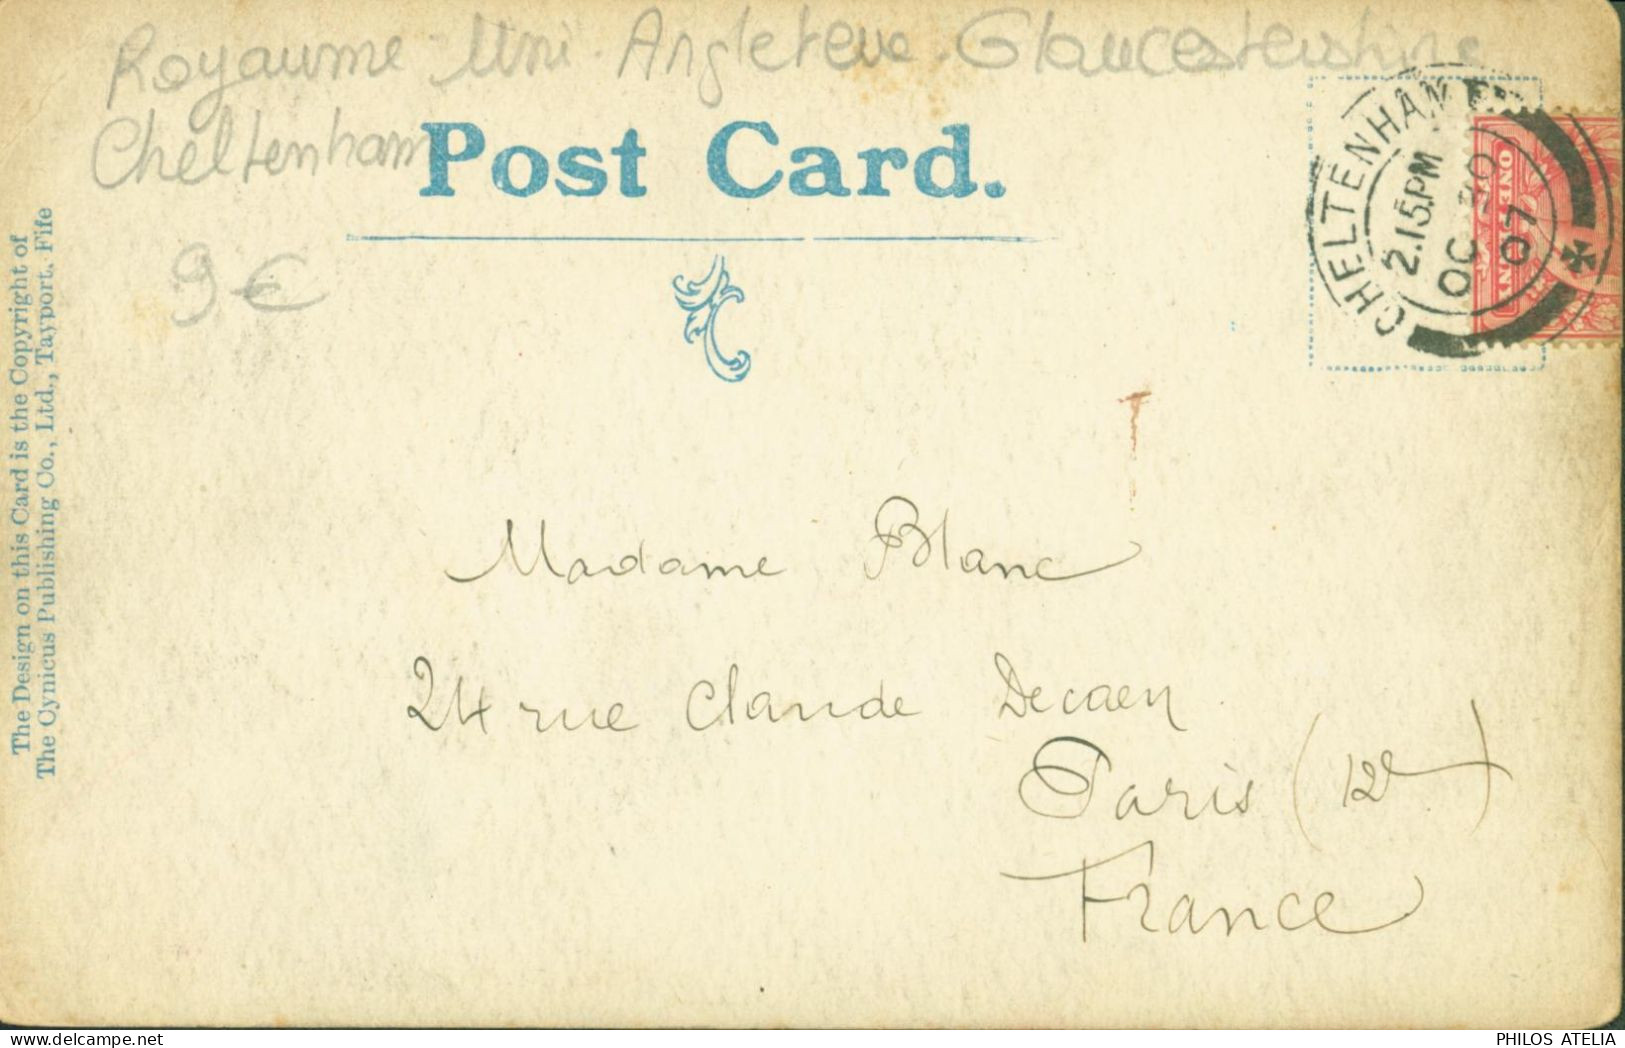 Royaume-Uni. Angleterre. Gloucestershire
Cheltenham
Post Card.
9 €
CHELTENHAM
2.15 PM
OC 30
07
ONE PENNY
The Design on this Card is the Copyright of
The Cynicus Publishing Co., Ltd., Tayport, Fife
Madame Blanc
24 rue Claude Decaen
Paris (12e)
France
PHILOS ATELIA